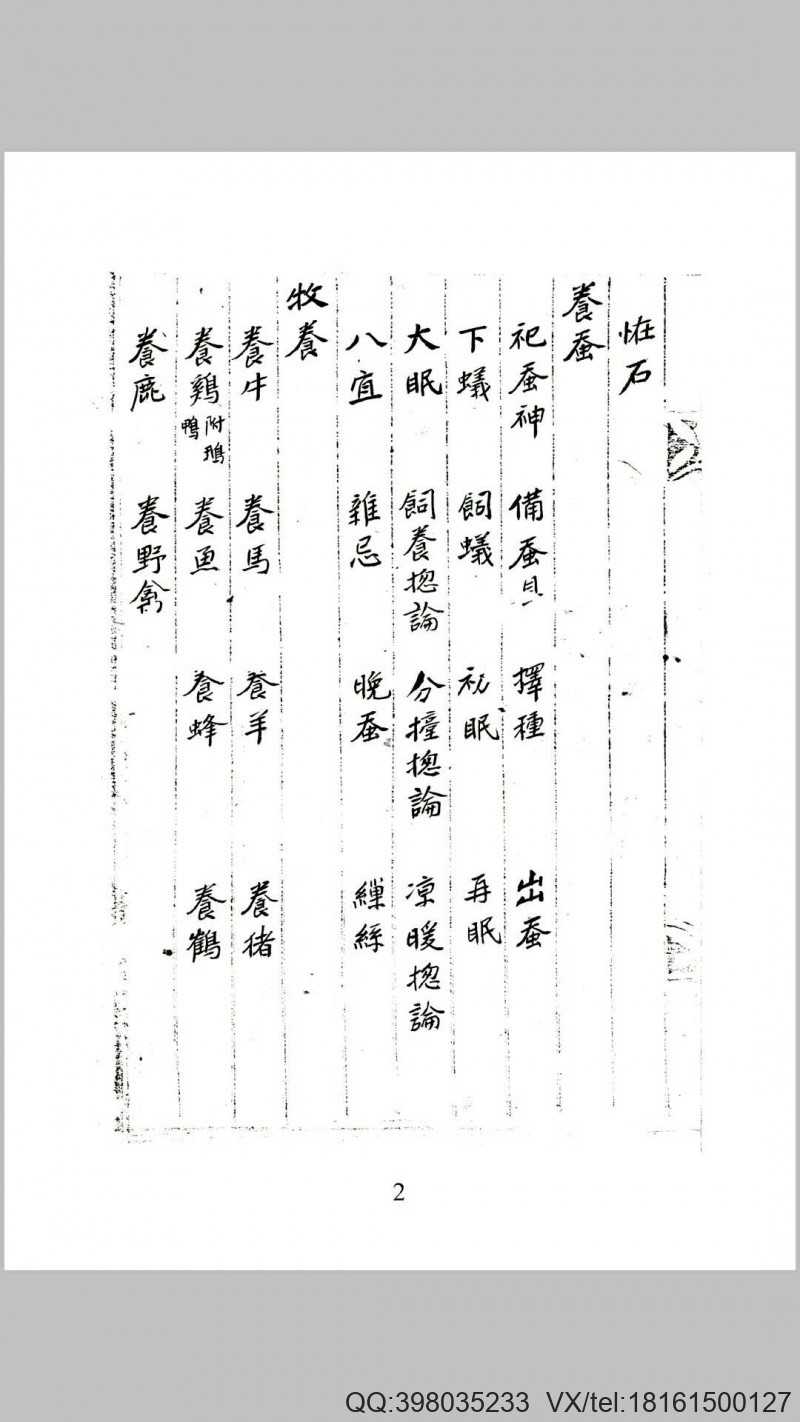 恠石
養蚕
祀蚕神 備蚕具 擇種 出蚕
下蟻 飼蟻 初眠 再眠
大眠 飼養揔論 分擡揔論 凉暖揔論
八宜 雜忌 晚蚕 繅絲
牧養
養牛 養馬 養羊 養猪
養鷄 附鵝鴨 養魚 養蜂 養鶴
養鹿 養野禽
2
QQ:398035233 VX/tel:18161500127